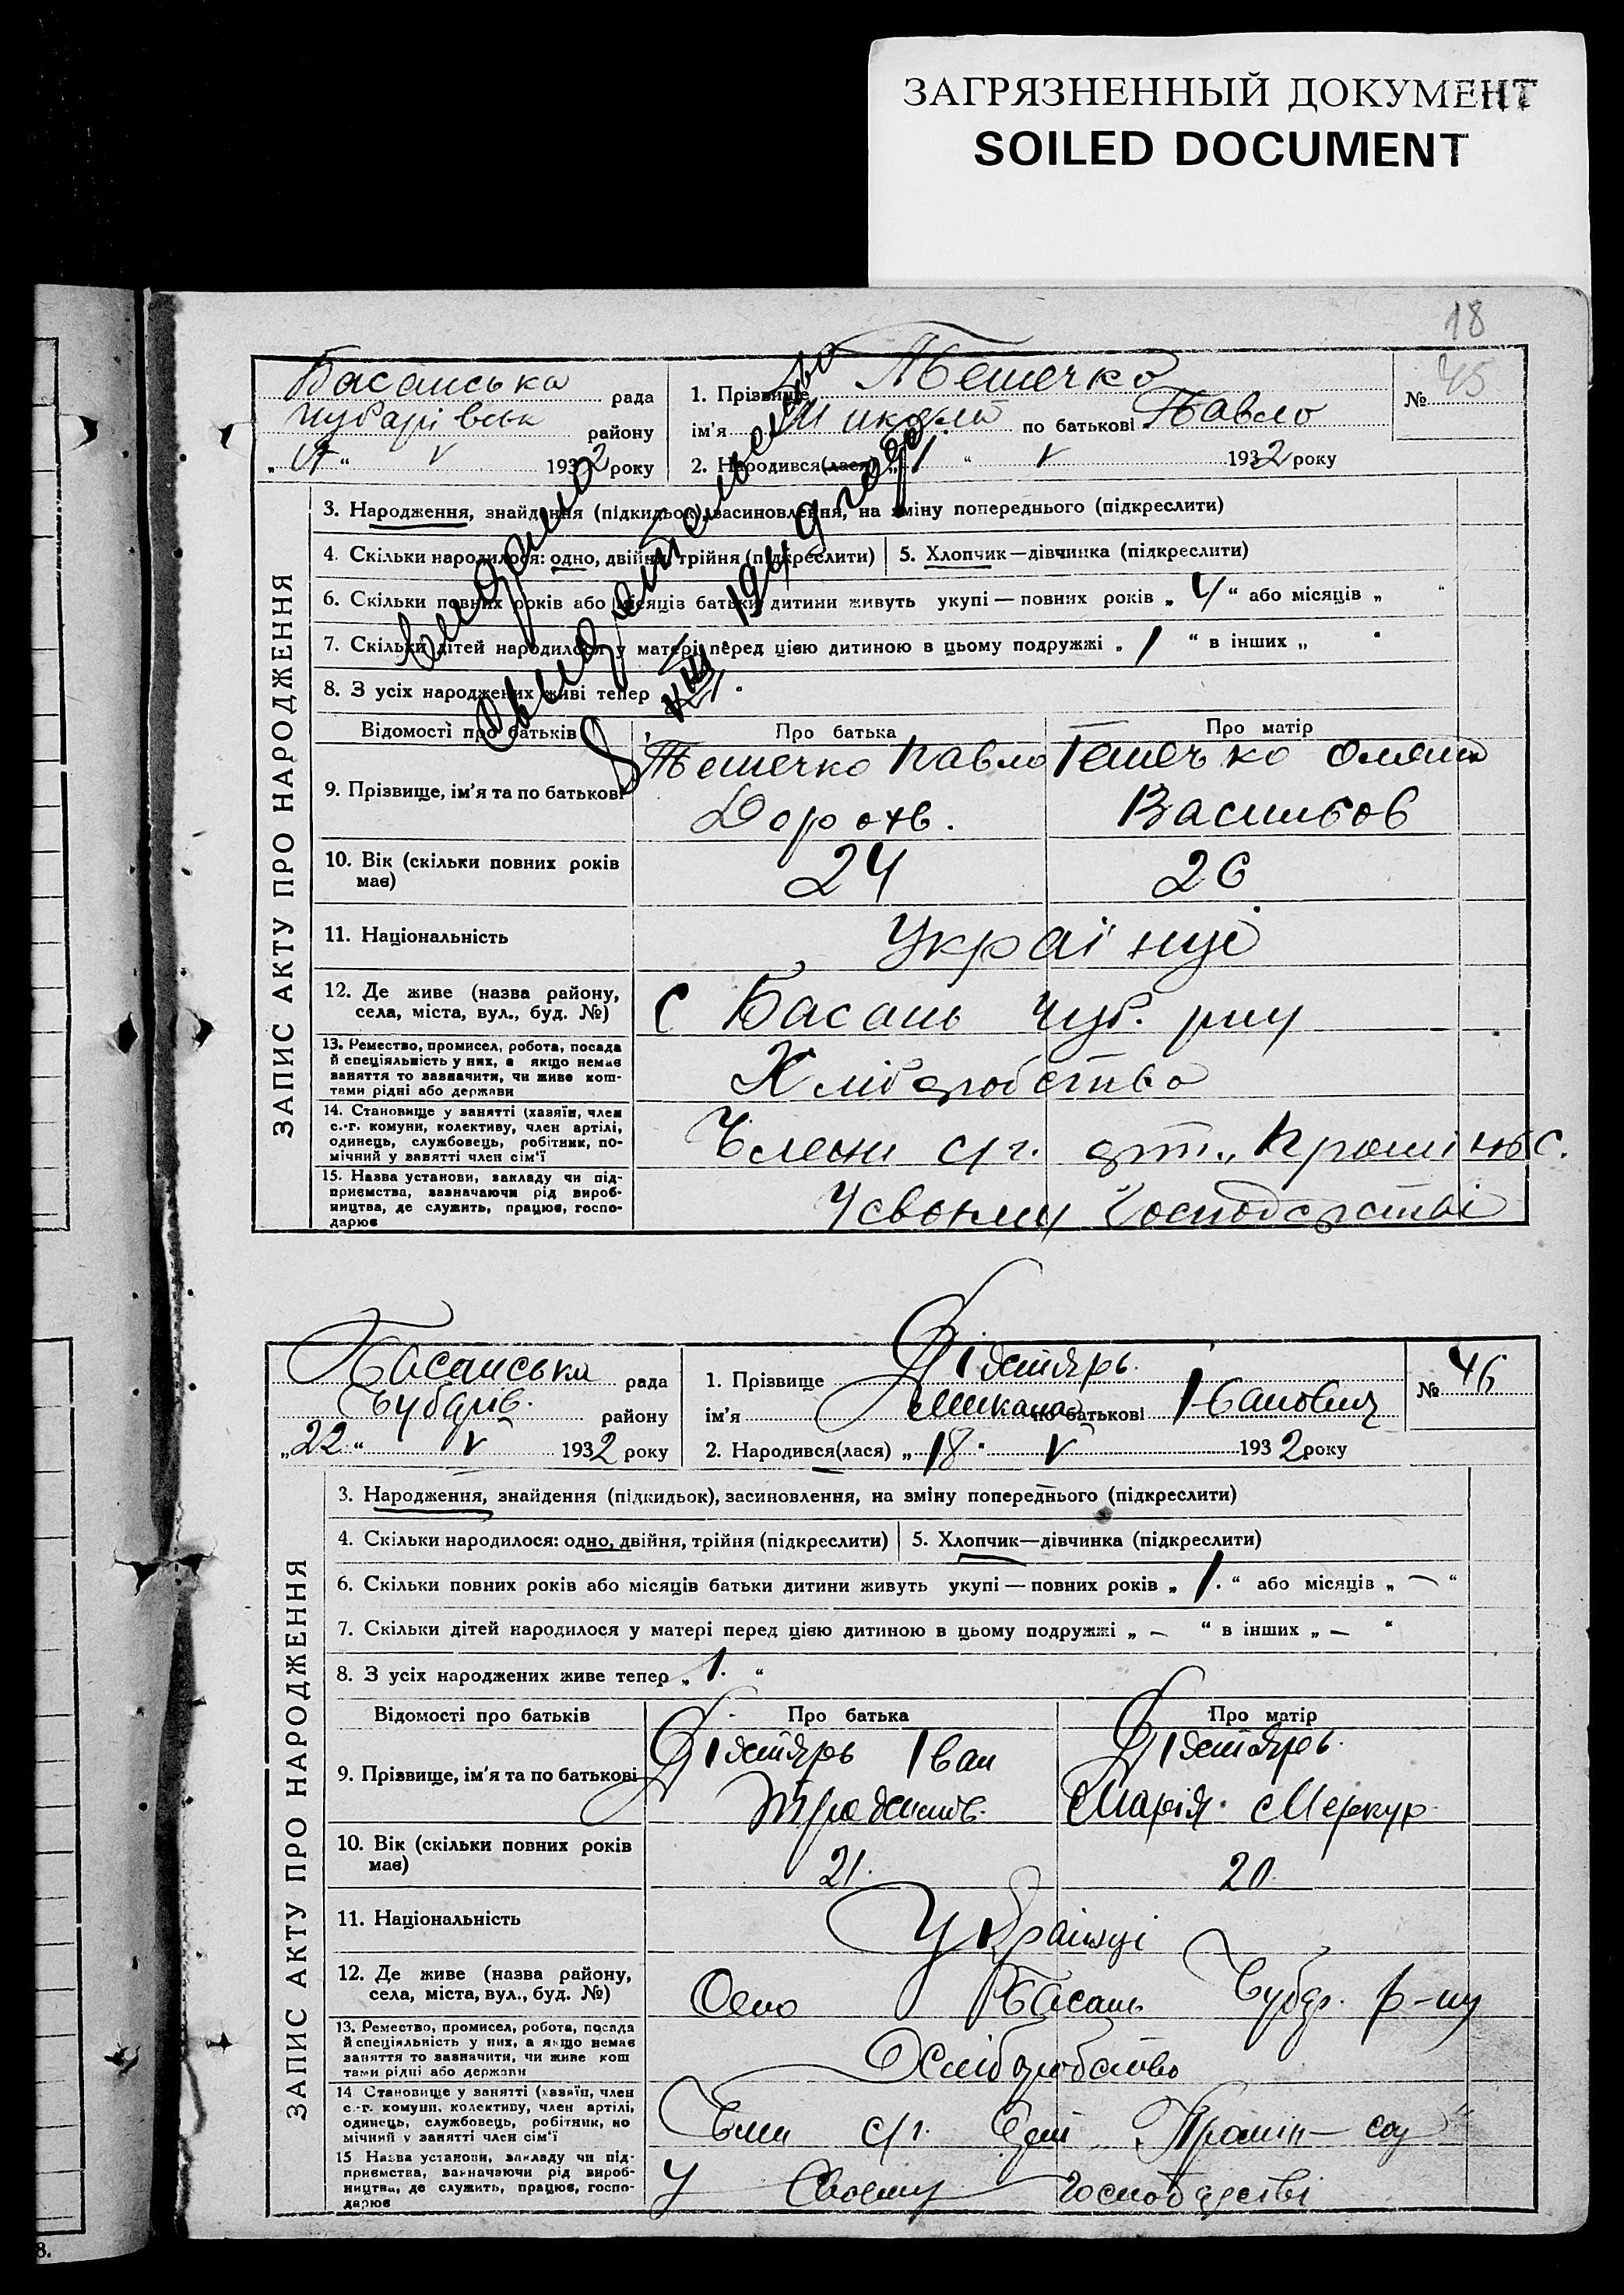 ЗАГРЯЗНЕННЫЙ ДОКУМЕНТ
SOILED DOCUMENT
18
Басанська рада
Чубарівськ району
" " V 1932 року
1. Прізвище Тешечко
ім'я Микола по батькові Павло
2. Народився(лася) „1“ V 1932 року
№ 45
выдано
свидетельство
8 XIII 1949 года
ЗАПИС АКТУ ПРО НАРОДЖЕННЯ
3. Народження, знайдення (підкидьок), засиновлення, на зміну попереднього (підкреслити)
4. Скільки народилося: одно, двійня, трійня (підкреслити) 5. Хлопчик—дівчинка (підкреслити)
6. Скільки повних років або місяців батьки дитини живуть укупі — повних років „ 4 “ або місяців „ “
7. Скільки дітей народилося у матері перед цією дитиною в цьому подружжі „ 1 “ в інших „ “
8. З усіх народжених живі тепер 1
Відомості про батьків Про батька Про матір
9. Прізвище, ім'я та по батькові
Тешечко Павло Тешечко Оляна
Дорохв. Васильов
10. Вік (скільки повних років має) 24 26
11. Національність Українці
12. Де живе (назва району, села, міста, вул., буд. №) С Басань Чуб. рну
13. Ремество, промисел, робота, посада й спеціяльність у них, а якщо немає заняття то зазначити, чи живе коштами рідні або держави
Хліборобство
14. Становище у занятті (хазяїн, член с.-г. комуни, колективу, член артілі, одинець, службовець, робітник, помічний у занятті член сім'ї
Члени с/г. арт. „Промінь С.
15. Назва установи, закладу чи підприємства, зазначаючи рід виробництва, де служить, працює, господарює
У своєму Господарстві
Басанська рада
Чубарів. району
„22“ V 1932 року
1. Прізвище Дігтярь
ім'я Микола по батькові Іванович
2. Народився(лася) „18“ V 1932 року
№ 46
ЗАПИС АКТУ ПРО НАРОДЖЕННЯ
3. Народження, знайдення (підкидьок), засиновлення, на зміну попереднього (підкреслити)
4. Скільки народилося: одно, двійня, трійня (підкреслити) 5. Хлопчик—дівчинка (підкреслити)
6. Скільки повних років або місяців батьки дитини живуть укупі — повних років „ 1. “ або місяців „ — “
7. Скільки дітей народилося у матері перед цією дитиною в цьому подружжі „ — “ в інших „ — “
8. З усіх народжених живе тепер „ 1. “
Відомості про батьків Про батька Про матір
9. Прізвище, ім'я та по батькові
Дігтярь Іван Дігтярь
Марія Меркур.
10. Вік (скільки повних років має) 21. 20.
11. Національність Українці
12. Де живе (назва району, села, міста, вул., буд. №) Село Басань Чубар. р-ну
13. Ремество, промисел, робота, посада й спеціяльність у них, а якщо немає заняття то зазначити, чи живе коштами рідні або держави
Хліборобство
14 Становище у занятті (хазяїн, член с.-г. комуни, колективу, член артілі, одинець, службовець, робітник, помічний у занятті член сім'ї
Член с/г. Арт. „Промінь соц“
15 Назва установи, закладу чи підприємства, зазначаючи рід виробництва, де служить, працює, господарює
У Своєму Господарстві
8.